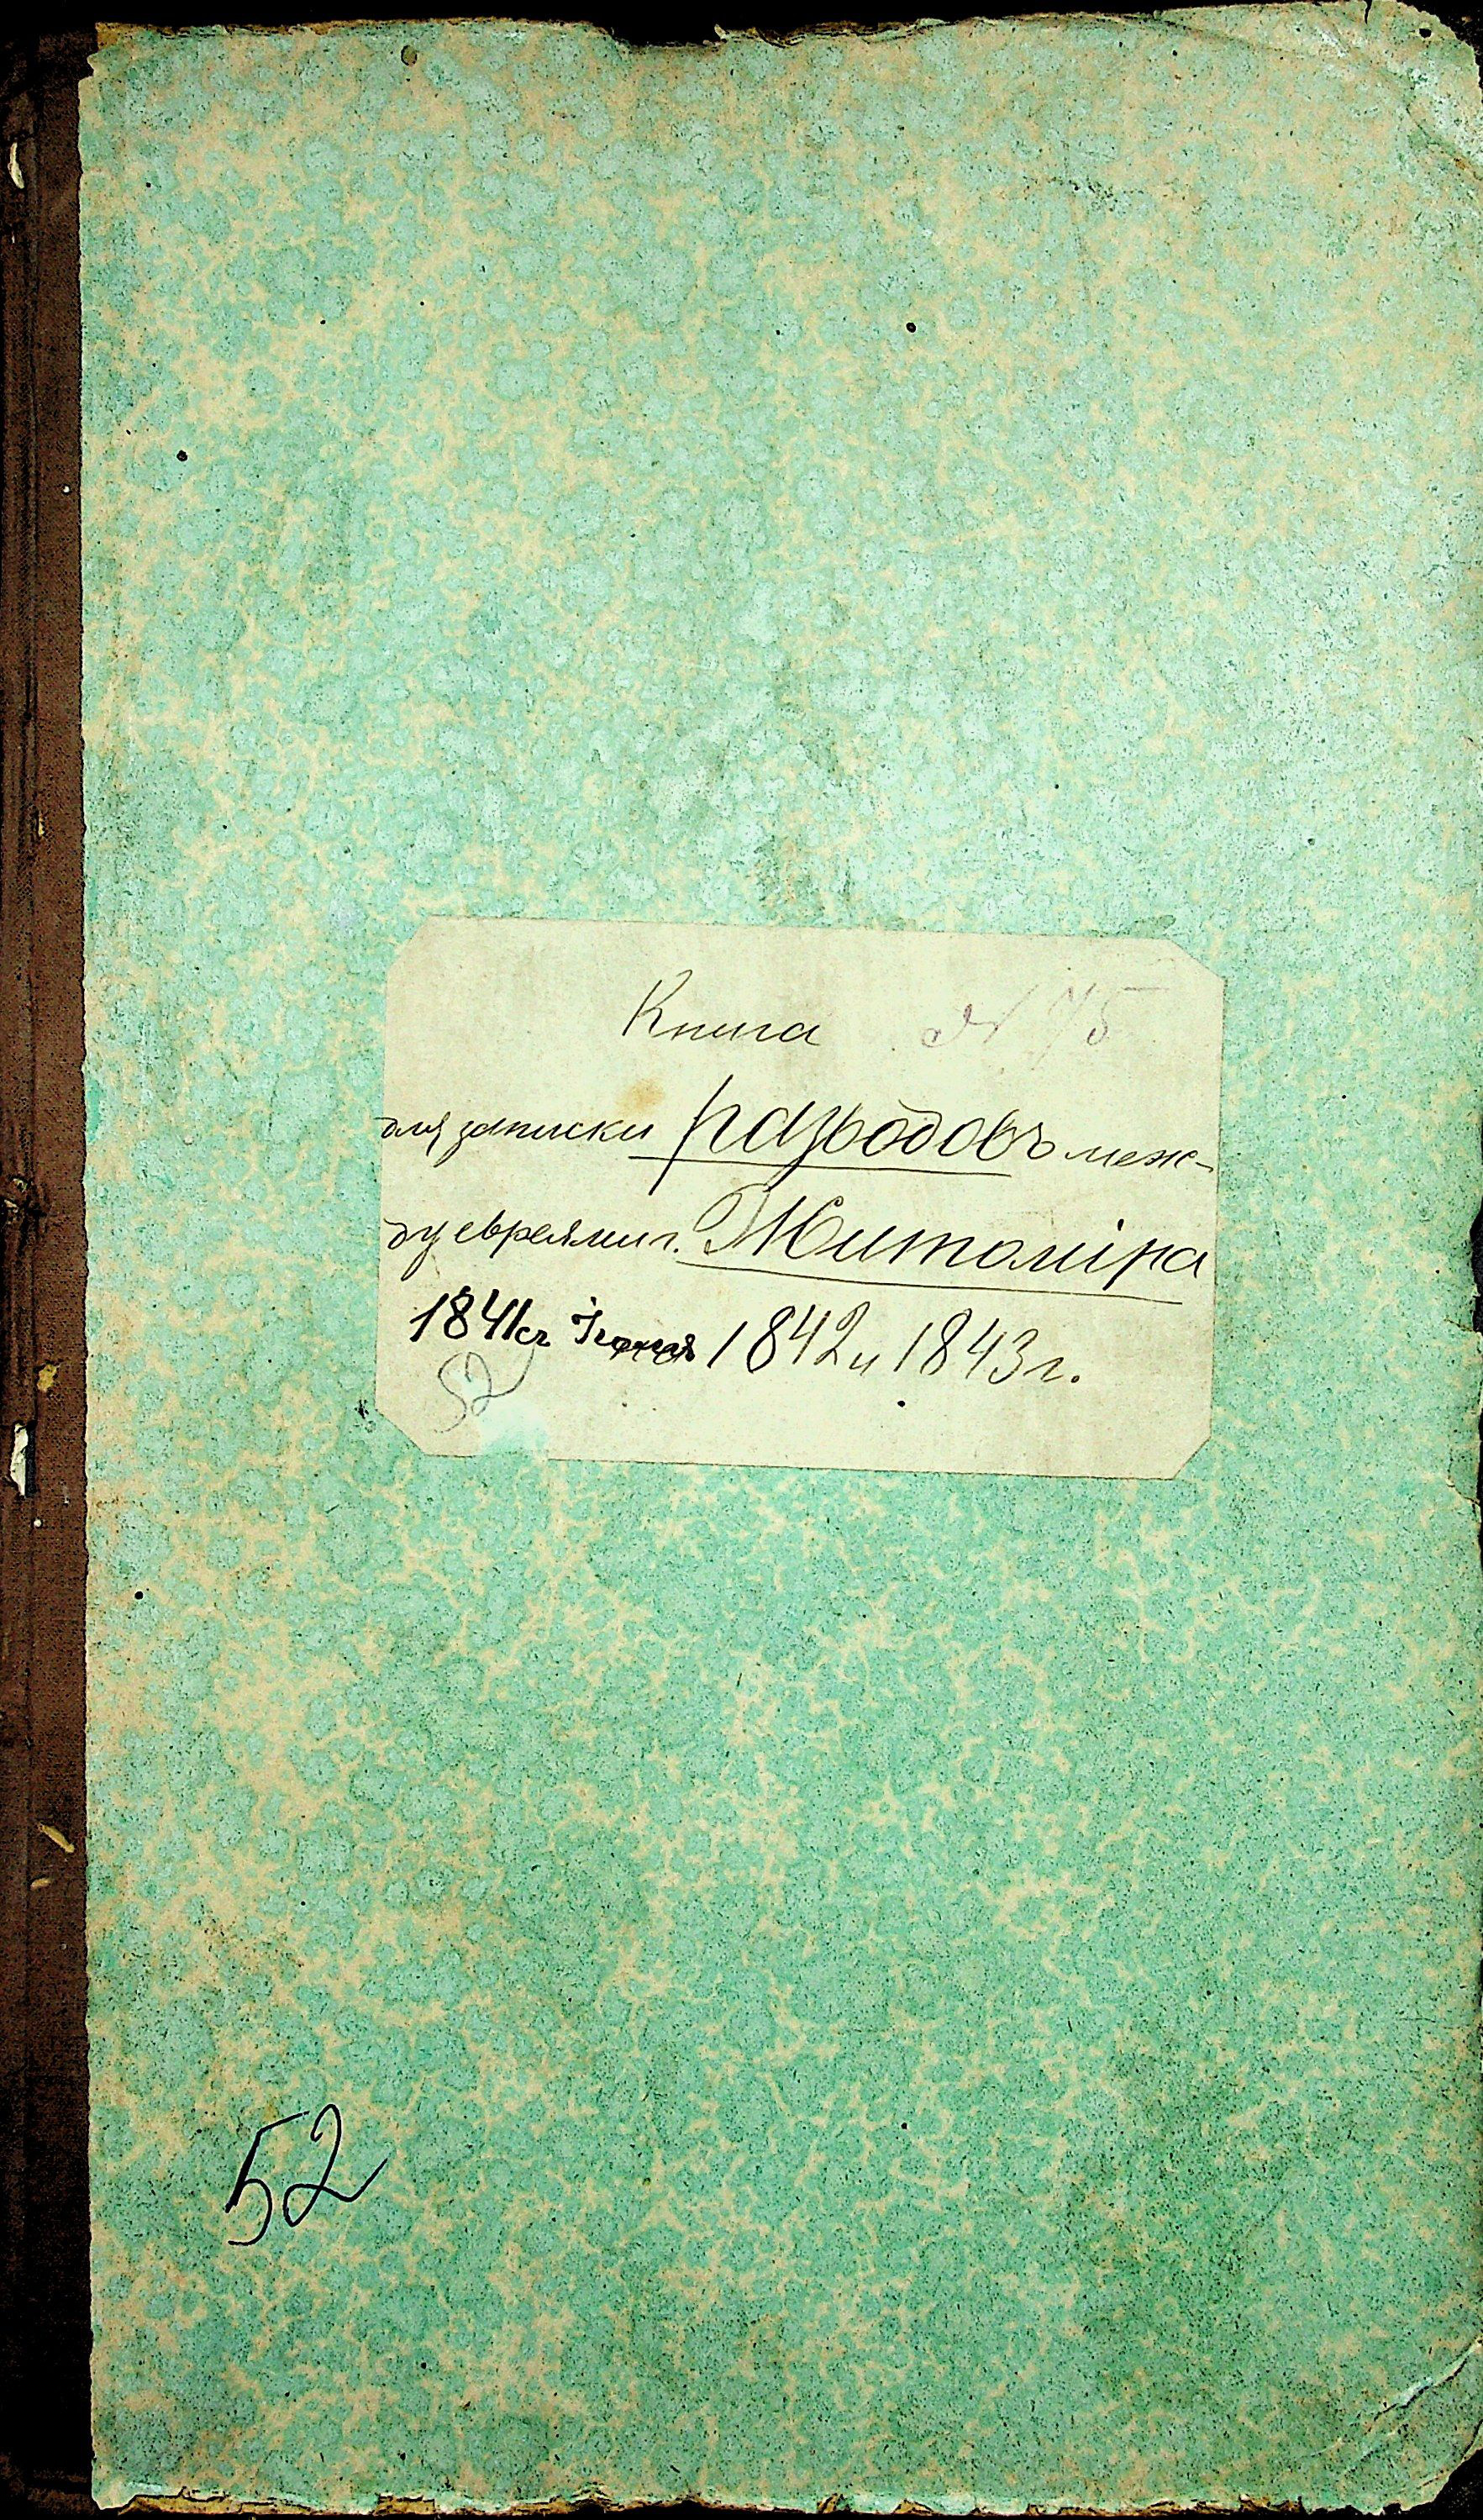 Книга № 75
для записки разводовъ меж-
ду евреями г. Житоміра
1841 съ Іюня 1842 и 1843 г.
52
52